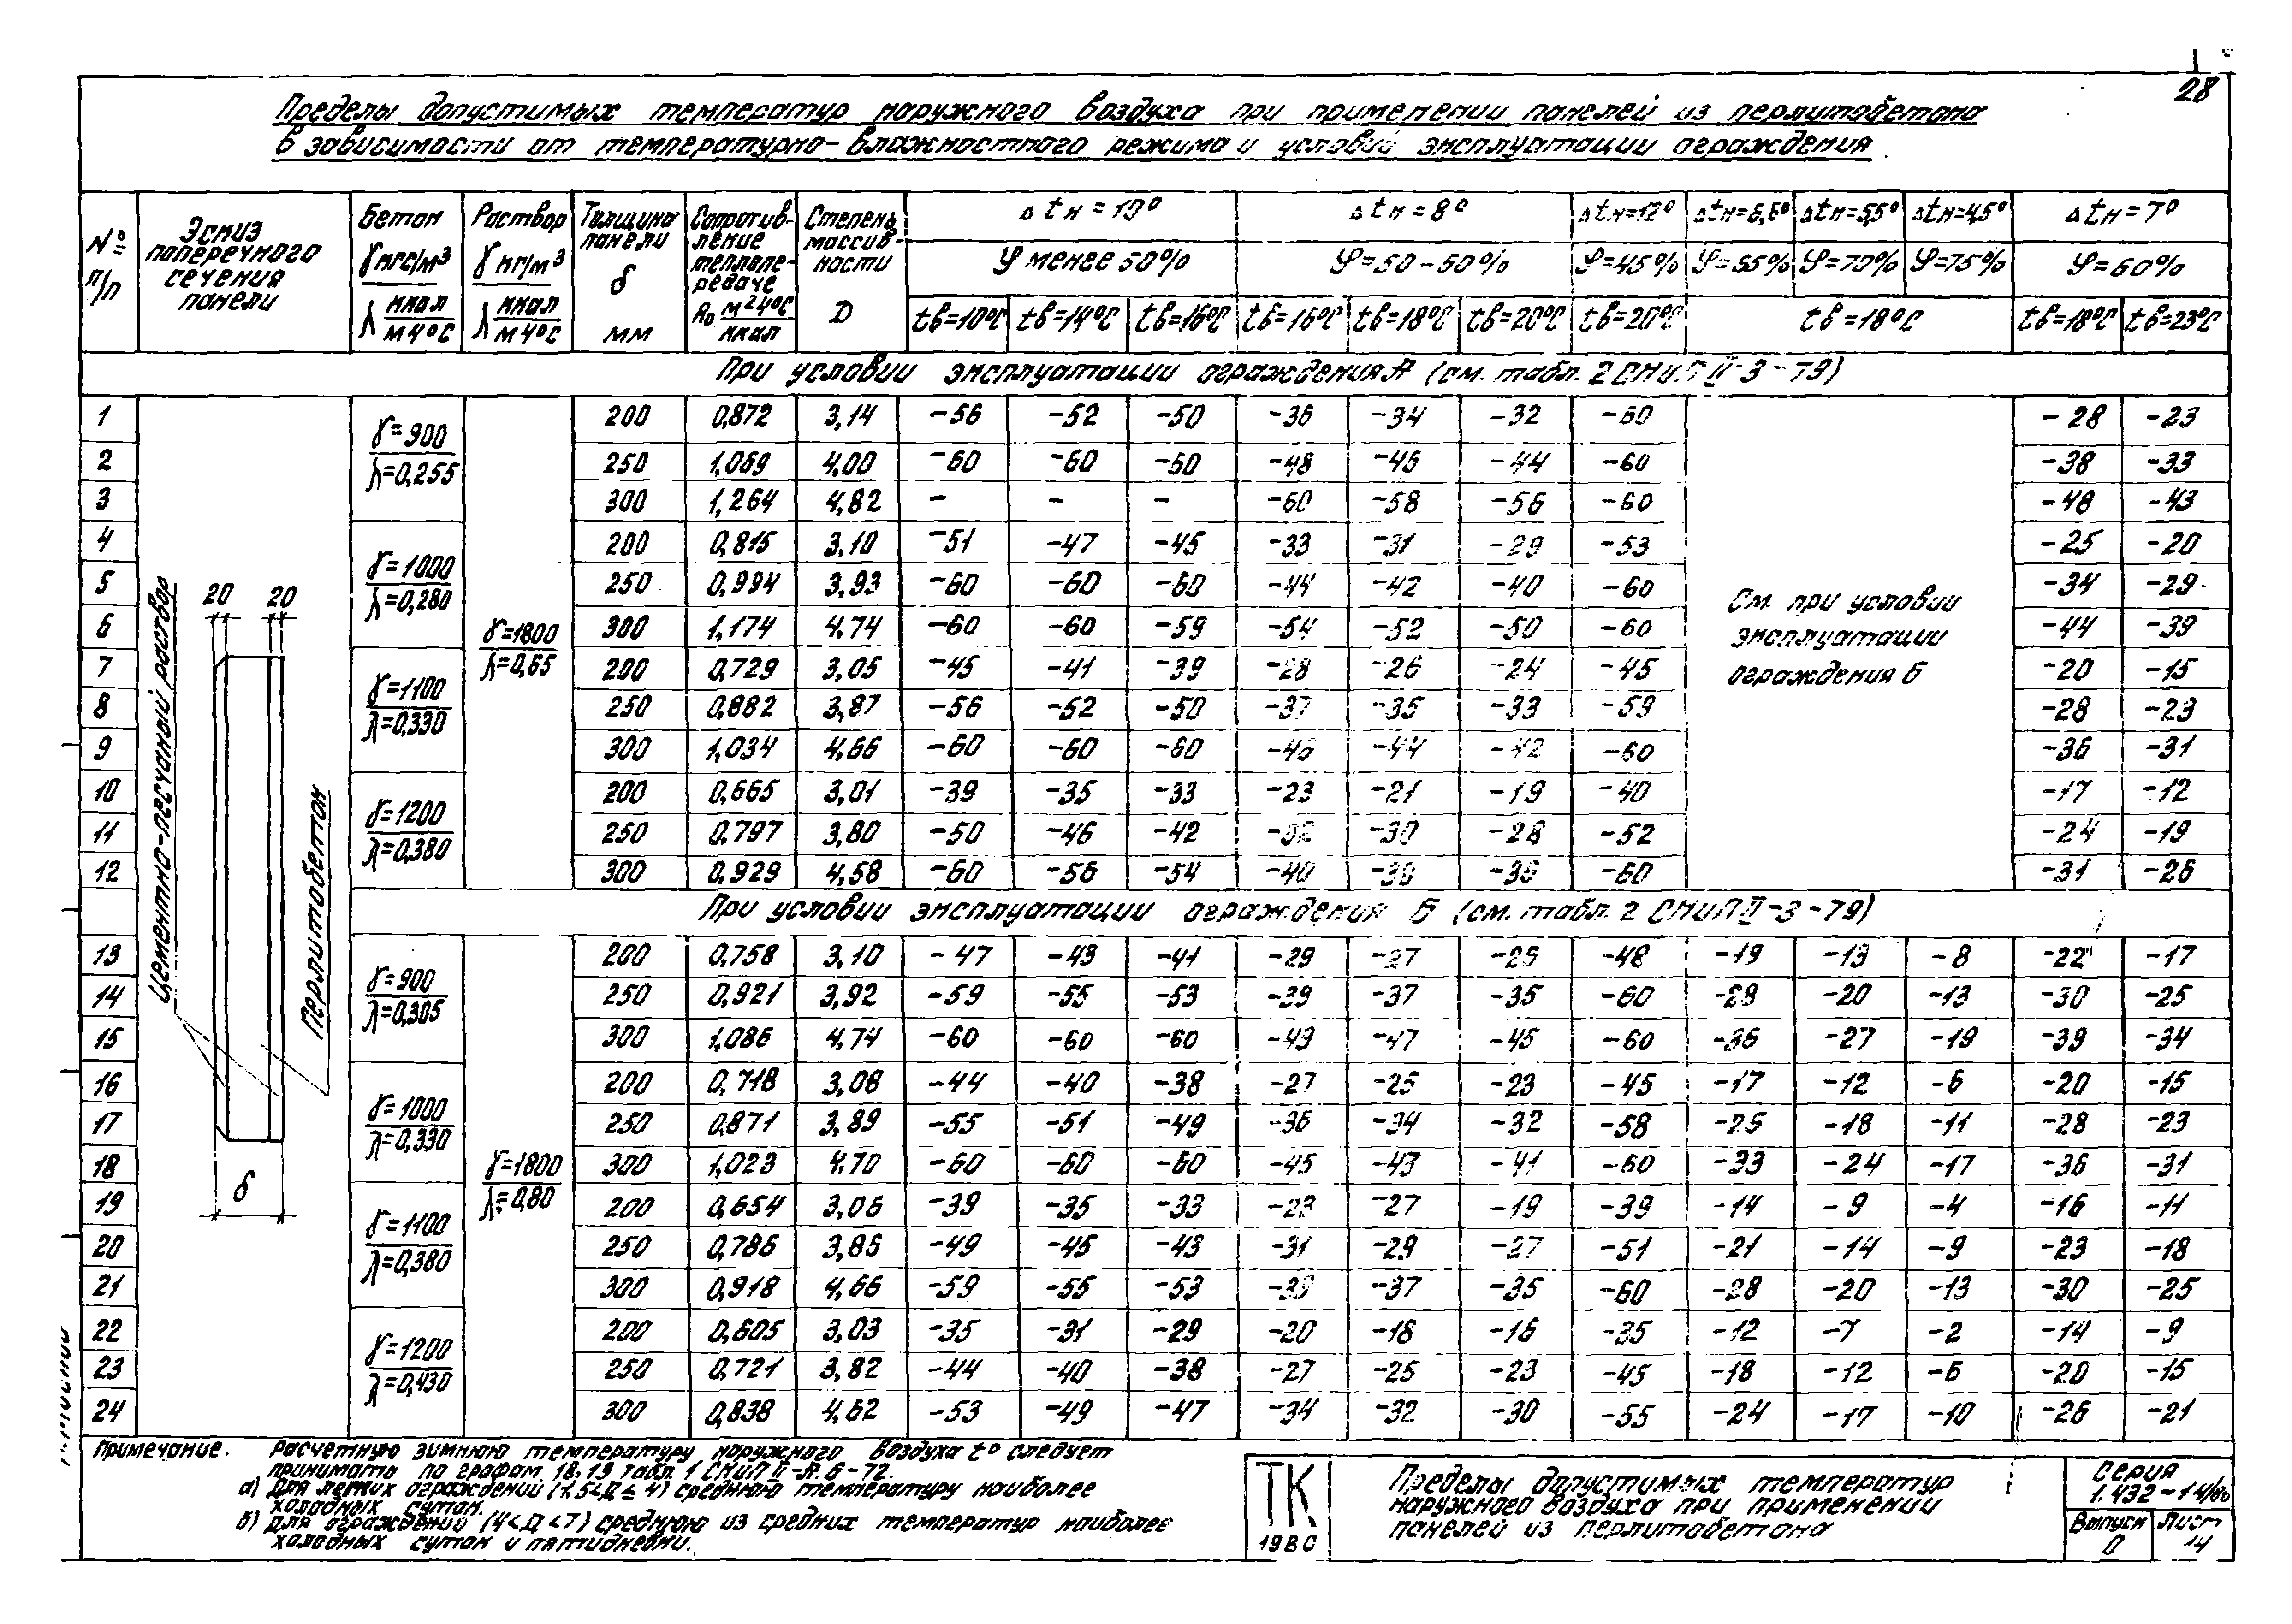 28
Пределы допустимых температур наружного воздуха при применении панелей из перлитобетона
в зависимости от температурно-влажностного режима и условий эксплуатации ограждения
№ п/п | Эскиз поперечного сечения панели | Бетон γ кгс/м³ λ ккал/м ч °С | Раствор γ кг/м³ λ ккал/м ч °С | Толщина панели δ мм | Сопротивление теплопередаче R₀ м² ч °С/ккал | Степень массивности D | Δtн = 10° | Δtн = 8° | Δtн=12° | Δtн=6,6° | Δtн=5,5° | Δtн=4,5° | Δtн = 7°
φ менее 50% | φ=50-60% | φ=45% | φ=65% | φ=70% | φ=75% | φ=60%
tв=10°С | tв=14°С | tв=16°С | tв=16°С | tв=18°С | tв=20°С | tв=20°С | tв=18°С | tв=18°С | tв=23°С
При условии эксплуатации ограждения А (см. табл. 2 СНиП II-3-79)
1 | γ=900 λ=0,255 | γ=1800 λ=0,65 | 200 | 0,872 | 3,14 | -56 | -52 | -50 | -36 | -34 | -32 | -60 | -28 | -23
2 | 250 | 1,069 | 4,00 | -60 | -60 | -60 | -48 | -46 | -44 | -60 | -38 | -33
3 | 300 | 1,264 | 4,82 | - | - | - | -60 | -58 | -56 | -60 | -48 | -43
4 | γ=1000 λ=0,280 | 200 | 0,815 | 3,10 | -51 | -47 | -45 | -33 | -31 | -29 | -53 | -25 | -20
5 | 250 | 0,994 | 3,93 | -60 | -60 | -60 | -44 | -42 | -40 | -60 | -34 | -29
6 | 300 | 1,174 | 4,74 | -60 | -60 | -59 | -54 | -52 | -50 | -60 | -44 | -39
7 | γ=1100 λ=0,330 | 200 | 0,729 | 3,05 | -45 | -41 | -39 | -28 | -26 | -24 | -45 | -20 | -15
8 | 250 | 0,882 | 3,87 | -56 | -52 | -50 | -37 | -35 | -33 | -59 | -28 | -23
9 | 300 | 1,034 | 4,66 | -60 | -60 | -60 | -46 | -44 | -42 | -60 | -36 | -31
10 | γ=1200 λ=0,380 | 200 | 0,665 | 3,01 | -39 | -35 | -33 | -23 | -21 | -19 | -40 | -17 | -12
11 | 250 | 0,797 | 3,80 | -50 | -46 | -42 | -32 | -30 | -28 | -52 | -24 | -19
12 | 300 | 0,929 | 4,58 | -60 | -56 | -54 | -40 | -38 | -36 | -60 | -31 | -26
См. при условии
эксплуатации
ограждения Б
20 20
Цементно-песчаный раствор
Перлитобетон
δ
При условии эксплуатации ограждения Б (см. табл. 2 СНиП II-3-79)
13 | γ=900 λ=0,305 | γ=1800 λ=0,80 | 200 | 0,758 | 3,10 | -47 | -43 | -41 | -29 | -27 | -25 | -48 | -19 | -13 | -8 | -22 | -17
14 | 250 | 0,921 | 3,92 | -59 | -55 | -53 | -39 | -37 | -35 | -60 | -28 | -20 | -13 | -30 | -25
15 | 300 | 1,086 | 4,74 | -60 | -60 | -60 | -49 | -47 | -45 | -60 | -36 | -27 | -19 | -39 | -34
16 | γ=1000 λ=0,330 | 200 | 0,718 | 3,08 | -44 | -40 | -38 | -27 | -25 | -23 | -45 | -17 | -12 | -6 | -20 | -15
17 | 250 | 0,871 | 3,89 | -55 | -51 | -49 | -36 | -34 | -32 | -58 | -25 | -18 | -11 | -28 | -23
18 | 300 | 1,023 | 4,70 | -60 | -60 | -60 | -45 | -43 | -41 | -60 | -33 | -24 | -17 | -36 | -31
19 | γ=1100 λ=0,380 | 200 | 0,654 | 3,06 | -39 | -35 | -33 | -23 | -27 | -19 | -39 | -14 | -9 | -4 | -16 | -11
20 | 250 | 0,786 | 3,86 | -49 | -45 | -43 | -31 | -29 | -27 | -51 | -21 | -14 | -9 | -23 | -18
21 | 300 | 0,918 | 4,66 | -59 | -55 | -53 | -39 | -37 | -35 | -60 | -28 | -20 | -13 | -30 | -25
22 | γ=1200 λ=0,430 | 200 | 0,605 | 3,03 | -35 | -31 | -29 | -20 | -18 | -16 | -35 | -12 | -7 | -2 | -14 | -9
23 | 250 | 0,721 | 3,82 | -44 | -40 | -38 | -27 | -25 | -23 | -45 | -18 | -12 | -6 | -20 | -15
24 | 300 | 0,838 | 4,62 | -53 | -49 | -47 | -34 | -32 | -30 | -55 | -24 | -17 | -10 | -26 | -21
Примечание. Расчетную зимнюю температуру наружного воздуха t° следует
принимать по графам 18, 19 табл. 1 СНиП II-А. 6-72.
а) для легких ограждений (1,5<Д≤4) среднюю температуру наиболее
холодных суток.
б) для ограждений (4<Д<7) среднюю из средних температур наиболее
холодных суток и пятидневки.
ТК
1980
Пределы допустимых температур
наружного воздуха при применении
панелей из перлитобетона
Серия
1.432-14/80
Выпуск 0
Лист 14